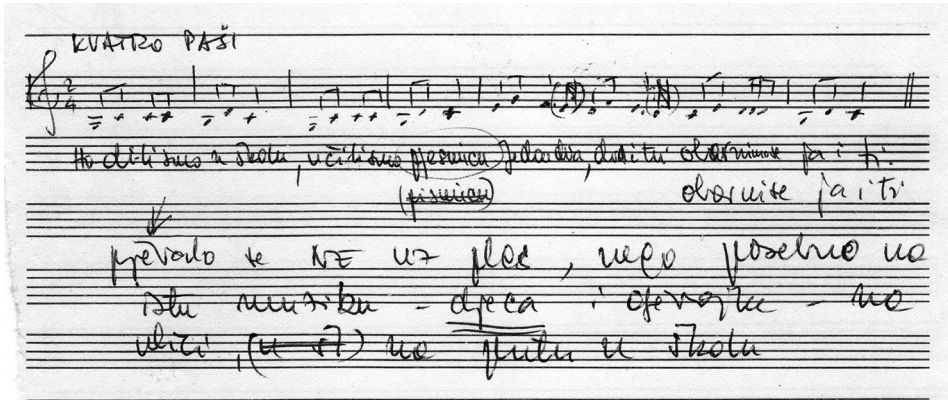 KVATRO PAŠI
2
4
Ho di-li smo u školu, učili smo pjesmicu jedan dva, dva i tri obrnimose ja i ti.
(pismicu) obrnise ja i ti
pjevalo se NE uz ples, nego posebno na
istu muziku - djeca i djevojke - na
ulici, (u š) na putu u školu